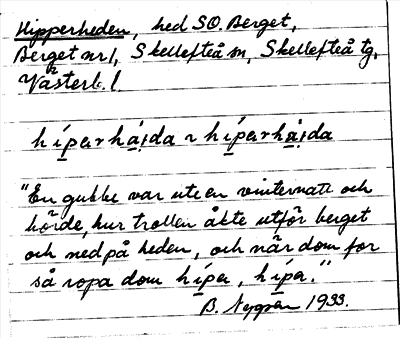 Hipperheden, hed SO. Berget,
Berget nr 1, Skellefteå sn, Skellefteå tg,
Västerb. l.
hípərhá̱i̯da ~ hípərhá̱i̯da
"En gubbe var ute en vinternatt och
hörde, hur trollen åkte utför berget
och ned på heden, och när dom for
så ropa dom hípər, hípər."
B. Nygren 1933.